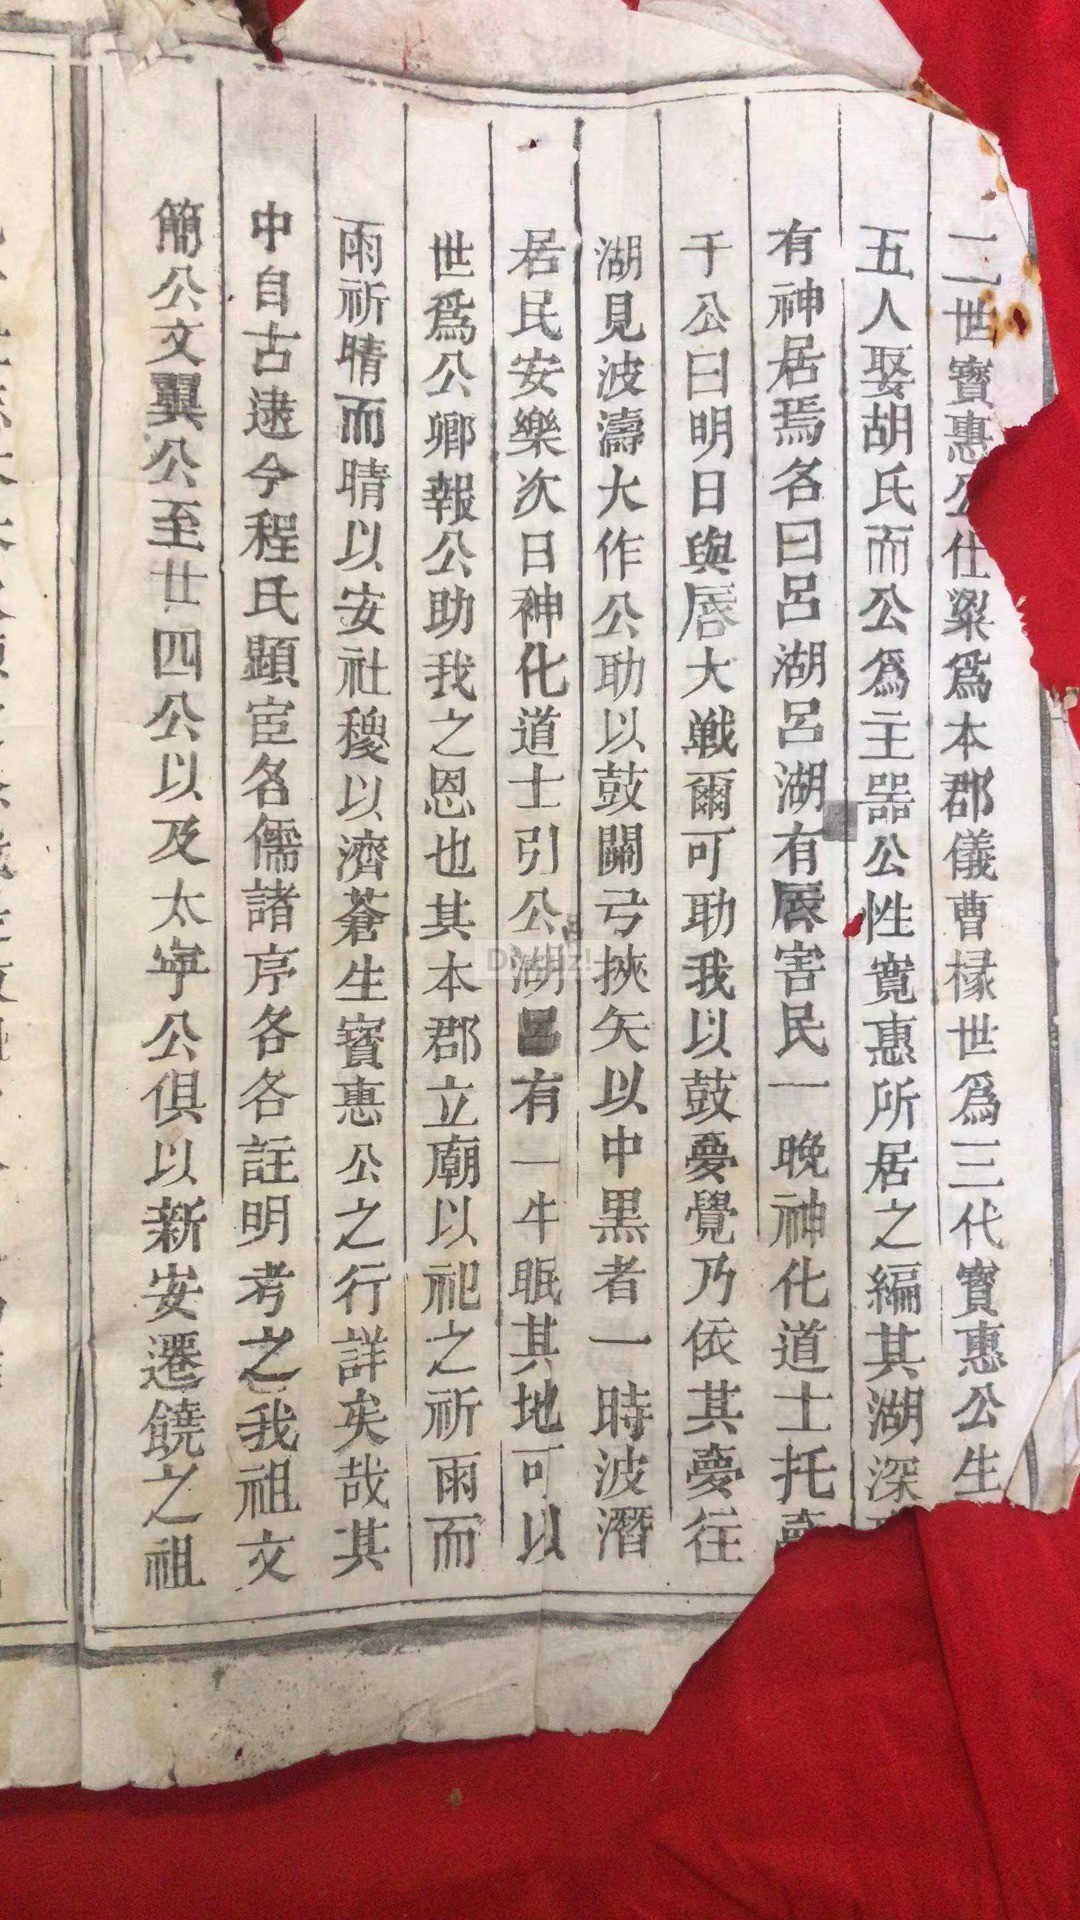 二世寶惠公仕梁爲本郡儀曹椽世爲三代寶惠公生
五人娶胡氏而公爲主噐公性寬惠所居之編其湖深
有神居焉名曰呂湖呂湖有唇害民一晚神化道士托
于公曰明日與唇大戦爾可助我以鼓憂覺乃依其憂往
湖見波濤大作公助以鼓關弓挾矢以中黒者一時波潛
居民安樂次日神化道士引公湖有一牛眠其地可以
世爲公卿報公助我之恩也其本郡立廟以祀之祈雨而
雨祈晴而晴以安社稷以濟蒼生寳惠公之行詳矣哉其
中自古逮今程氏顕宦各儒諸序各各註明考之我祖文
簡公文翼公至廿四公以及太寧公俱以新安遷饒之祖